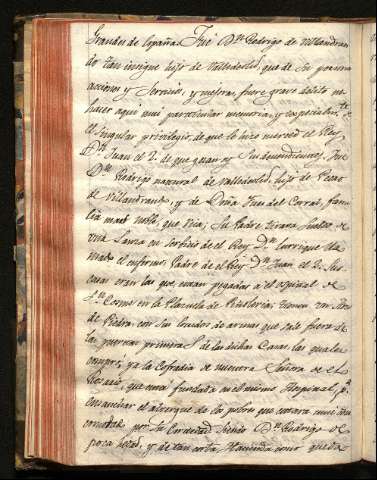 Grandes de España. Fué Dn. Rodrigo de Villandran
do tan insigne hijo de Valladolid, que de su persona
acciones y Servicios, y nobleza, fuera grave delito no
hacer aqui mui particular memoria, y especialmte. de
el singular privilegio, de que le hizo merced el Rey
Dn. Juan el 2. de que gozan sus Descendientes. Fue
Dn. Rodrigo natural de Valladolid, hijo de Pedro
de Villandrando, y de Doña Ines del Corral, fami
lia mas noble, que rica; Su Padre tirava sueldo de
una Lanza en servicio de el Rey Dn. Enrrique lla
mado el enfermo, Padre de el Rey Dn. Juan el 2. Sus
casas eran las que estan pegadas a el ospital de
Sn. Cosme en la Plazuela de Rinconada; tienen un
de Piedra con los escudos de armas que sale fuera de
la puerta primera de las dichas Casas, las quales
compró ya la Cofradia de nuestra Señora de el
Rosario, que está fundada en el mismo Hospital, pa.
ensanchar el albergue de los pobres que estava mui
por su Cortedad. Siendo Dn. Rodrigo de
poca hedad, y de tan corta Hacienda como queda